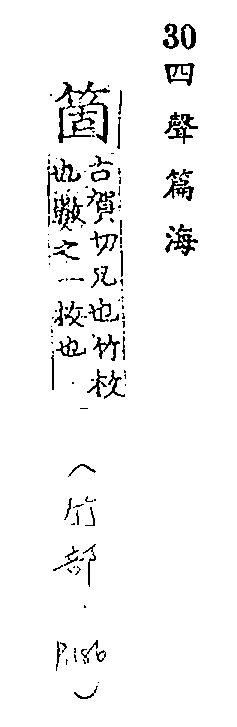 30四聲篇海
箇
古賀切凡也竹枚
也數之一枚也
(竹部.P.186)